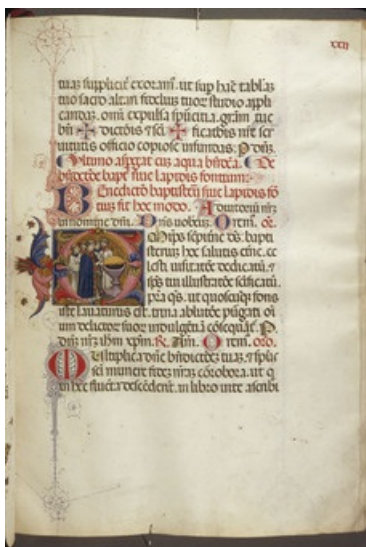 XXII
tuaz suppliciter exoram. ut sup hac tablaz
tuo sacro altari fideliuz tuoz studio appli
candaz. omi expulsa spurcitia. gram tue
bn ✠ dictois & sci ✠ ficatois nit ser
uitutis officio copiose infundas. P dnz.
Ultimo aspgat euz aqua bndca. De
bndictoe bapt siue lapidis fontium:
Benedictio baptisterij siue lapidis fo
tium fit hoc modo. Adiutoriu nrz
in nomine dni. Dns uobiscu. Orem. or.
Omps sempitne ds. bapti
sterium hoc salutis etne. ce
lesti uisitatoe dedicatu. &
sps tui illustratoe scificatu.
pra qs. ut quoscuqz fons
iste lauaturus est. trina ablutoe purgati oi
um delictoz suoz indulgentia cosequat. P.
dnm nrz ihm xpm. R. Am. Orem. oro.
Multiplica dne bndictoez tuaz. & spus
sci munere fidez nraz corobora. ut q
in hec fluenta descederit. in libro uite ascribi